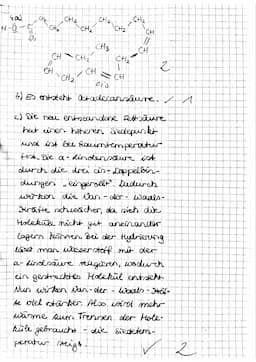 4a)
CH₂ CH₂ CH₂ CH₂
CH₃
CH CH
CH₂ CH₂
cis
2
b) Es entsteht Octadecansäure. ✓ 1
c) Die neu entstandene Fettsäure
hat einen höheren Siedepunkt
und ist bei Raumtemperatur
fest. Die α-Linolensäure ist
durch die drei cis-Doppelbin-
dungen „eingerollt". Dadurch
wirken die Van-der-Waals-
Kräfte schwächer, da sich die
Moleküle nicht gut aneinander
lagern können. Bei der Hydrierung
lässt man Wasserstoff mit der
α-Linolensäure reagieren, wodurch
ein gestrecktes Molekül entsteht.
Nun wirken Van-der-Waals-Kräf-
te viel stärker. Also wird mehr
Wärme zum Trennen der Mole-
küle gebraucht - die Siedetem-
peratur steigt. ✓ 2